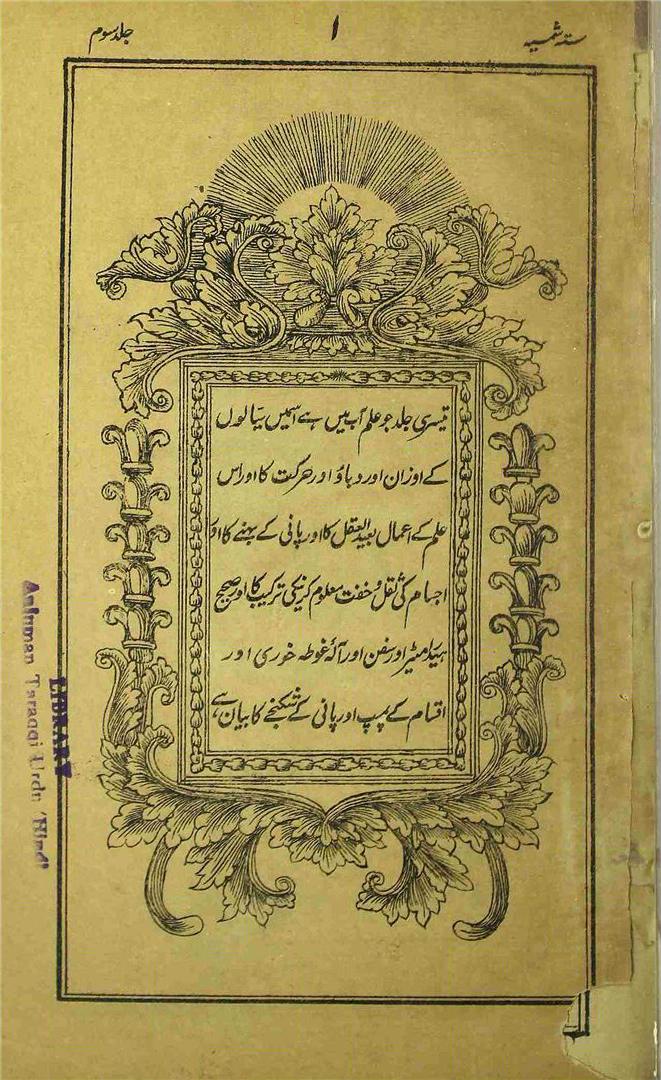 ستہ شمسیہ
۱
جلد سوم
تیسری جلد جو علم آب میں ہے اسمیں سیالوں
کے اوزان اور دباؤ اور حرکت کا اور اس
علم کے اعمال بعید العقل کا اور پانی کے بہنے کا اور
اجسام کی ثقل و خفت معلوم کرنیکی ترکیب کا اور
ہیڈرامیٹر اور سفن اور آلۂ غوطہ خوری اور
اقسام کے پمپ اور پانی کے شکنجے کا بیان ہے
LIBRARY
Anjuman Taraqqi Urdu 'Hind'